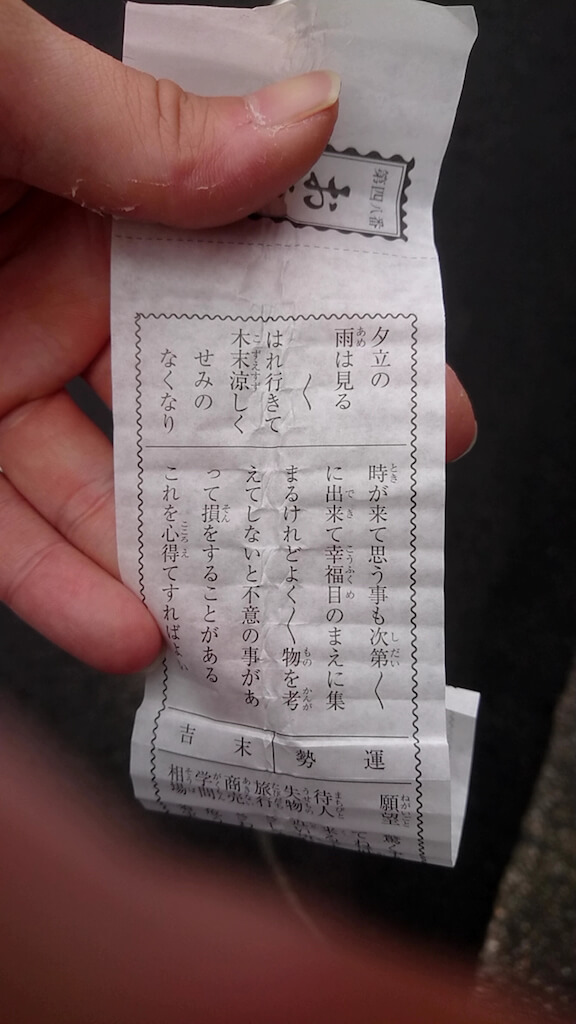 第四八番
お
夕立の
雨は見る
〱
はれ行きて
木末涼しく
せみの
なくなり
時が来て思う事も次第〱
に出来て幸福目のまえに集
まるけれどよく〱物を考
えてしないと不意の事があ
って損をすることがある
これを心得てすればよい
運勢
末吉
願望
待人
失物
旅行
商売
学問
相場